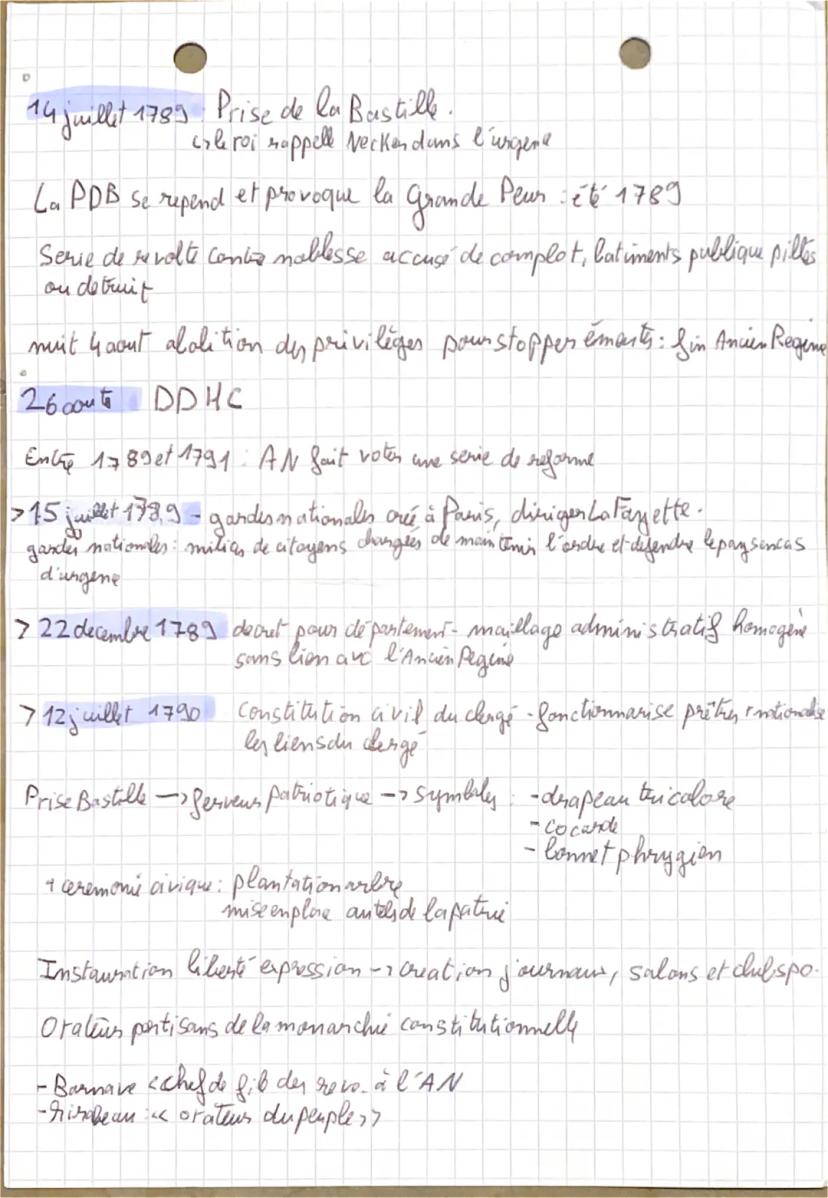 14 juillet 1789 Prise de la Bastille.
↳ le roi rappelle Necker dans l'urgence
La PDB se repend et provoque la Grande Peur : été 1789
Serie de revolte contre noblesse accusé de complot, batiments publique pillés
ou detruit
nuit 4 aout abolition des privilèges pour stopper émeuts : fin Ancien Regime
26 aout DDHC
Entre 1789 et 1791 : AN fait voter une serie de reforme
> 15 juillet 1789 - gardes nationales créé à Paris, diriger La Fayette.
gardes nationales : milices de citoyens chargées de maintenir l'ordre et defendre le pays en cas
d'urgence
> 22 decembre 1789 decret pour département - maillage administratif homogène
sans lien avc l'Ancien Regime
> 12 juillet 1790 Constitution civil du clergé - fonctionnarise prêtres + nationalise
les biens du clergé
Prise Bastille -> ferveur patriotique -> symboles : - drapeau tricolore
- cocarde
- bonnet phrygien
+ ceremonie civique : plantation arbre
mise en place autels de la patrie
Instauration liberté expression -> creation journaux, salons et clubs po.
Orateurs partisans de la monarchie constitutionnelle
- Barnave << chef de fil des revo. à l'AN
- Mirabeau : << orateur du peuple >>